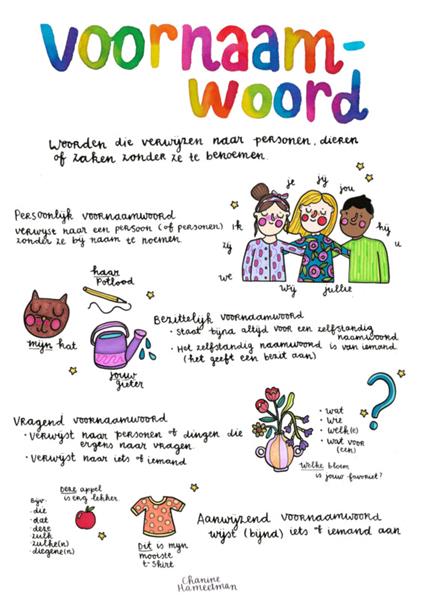 Voornaam-
woord
Woorden die verwijzen naar personen, dieren
of zaken zonder ze te benoemen.
Persoonlijk voornaamwoord
verwijst naar een persoon (of personen)
zonder ze bij naam te noemen
je
jij
jou
ik
hij
zij
u
we
wij
jullie
haar
potlood
mijn kat
jouw
gieter
Bezittelijk voornaamwoord
• Staat bijna altijd voor een zelfstandig
naamwoord
• Het zelfstandig naamwoord is van iemand
(het geeft een bezit aan)
Vragend voornaamwoord
• verwijst naar personen of dingen die
ergens naar vragen.
• Verwijst naar iets of iemand
• wat
• wie
• welk(e)
• wat voor
(een)
Welke bloem
is jouw favoriet?
Deze appel
is erg lekker
Bijv:
- die
- dat
- deze
- zulk
- zulke(n)
- diegene(n)
Dit is mijn
mooiste
t-shirt
Aanwijzend voornaamwoord
wijst (bijna) iets of iemand aan
Chanine
Hameetman